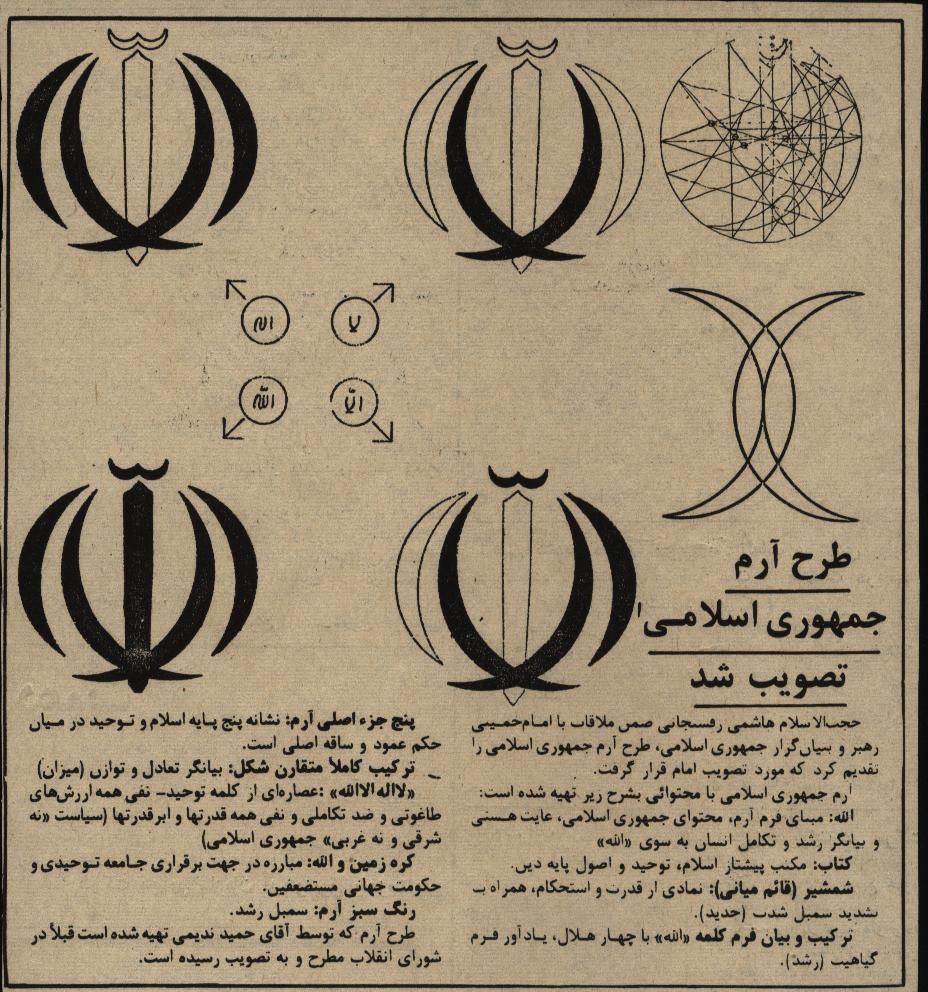 لا
اله
الا
الله
طرح آرم
جمهوری اسلامی
تصویب شد
حجت‌الاسلام هاشمی رفسنجانی ضمن ملاقات با امام‌خمینی
رهبر و بنیان‌گزار جمهوری اسلامی، طرح آرم جمهوری اسلامی را
تقدیم کرد که مورد تصویب امام قرار گرفت.
آرم جمهوری اسلامی با محتوائی بشرح زیر تهیه شده است:
الله: مبنای فرم آرم، محتوای جمهوری اسلامی، غایت هستی
و بیانگر رشد و تکامل انسان به سوی «الله»
کتاب: مکتب پیشتاز اسلام، توحید و اصول پایه دین.
شمشیر (قائم میانی): نمادی از قدرت و استحکام، همراه با
تشدید سمبل شدت (حدید).
ترکیب و بیان فرم کلمه «الله» با چهار هلال، یادآور فرم
گیاهیت (رشد).
پنج جزء اصلی آرم: نشانه پنج پایه اسلام و توحید در میان
حکم عمود و ساقه اصلی است.
ترکیب کاملاً متقارن شکل: بیانگر تعادل و توازن (میزان)
«لااله‌الاالله»: عصاره‌ای از کلمه توحید– نفی همه ارزش‌های
طاغوتی و ضد تکاملی و نفی همه قدرتها و ابرقدرتها (سیاست «نه
شرقی و نه غربی» جمهوری اسلامی)
کره زمین و الله: مبارزه در جهت برقراری جامعه توحیدی و
حکومت جهانی مستضعفین.
رنگ سبز آرم: سمبل رشد.
طرح آرم که توسط آقای حمید ندیمی تهیه شده است قبلاً در
شورای انقلاب مطرح و به تصویب رسیده است.